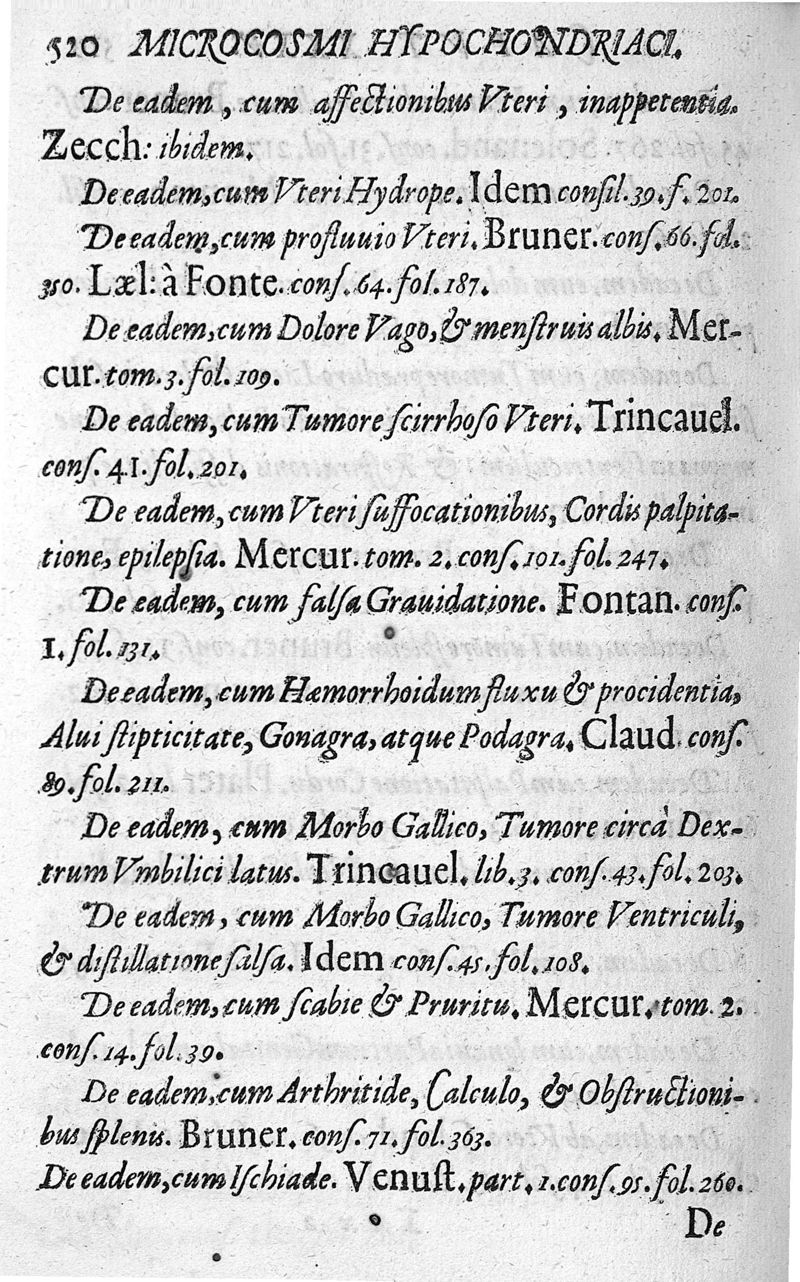 520 MICROCOSMI HYPOCHONDRIACI.
De eadem, cum affectionibus Vteri, inappetentia.
Zecch: ibidem.
De eadem, cum Vteri Hydrope. Idem consil. 39. f. 201.
De eadem, cum profluuio Vteri. Bruner. cons. 66. fol.
350. Læl: à Fonte. cons. 64. fol. 187.
De eadem, cum Dolore Vago, & menstruis albis. Mer-
cur. tom. 3. fol. 109.
De eadem, cum Tumore scirrhoso Vteri. Trincauel.
cons. 41. fol. 201.
De eadem, cum Vteri suffocationibus, Cordis palpita-
tione, epilepsia. Mercur. tom. 2. cons. 101. fol. 247.
De eadem, cum falsa Grauidatione. Fontan. cons.
1. fol. 131.
De eadem, cum Hæmorrhoidum fluxu & procidentia,
Alui stipticitate, Gonagra, atque Podagra. Claud. cons.
89. fol. 211.
De eadem, cum Morbo Gallico, Tumore circà Dex-
trum Vmbilici latus. Trincauel. lib. 3. cons. 43. fol. 203.
De eadem, cum Morbo Gallico, Tumore Ventriculi,
& distillatione salsa. Idem cons. 45. fol. 108.
De eadem, cum scabie & Pruritu. Mercur. tom. 2.
cons. 14. fol. 39.
De eadem, cum Arthritide, Calculo, & Obstructioni-
bus splenis. Bruner. cons. 71. fol. 363.
De eadem, cum Ischiade. Venust. part. 1. cons. 95. fol. 260.
De